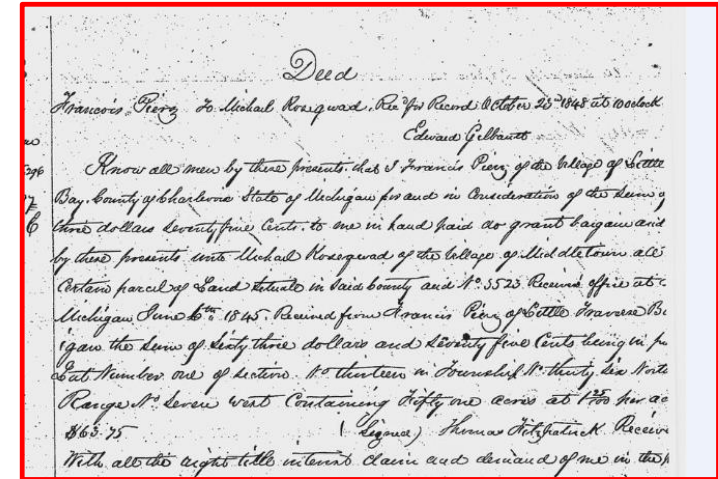 Deed
Francois Pierz To Michael Kosequad. Rec'd for Record October 25th 1848 at 10 oclock
Edward Gilbault
Know all men by these presents. that I Francis Pierz of the Village of Little
Bay. County of Charlevoix State of Michigan for and in Consideration of the Sum of
three dollars Seventy five Cents. to me in hand paid do grant bargain and
by these presents unto Michael Kosequad of the Village of Middletown. all
Certain parcel of Land situate in Said County and No. 5523 Receivers office at
Michigan June 6th 1845. Received from Francis Pierz of Little Traverse B
igan the Sum of Sixty three dollars and Seventy five Cents being in
Lot Number one of Section. No thirteen in Township No thirty Six North
Range No Seven West Containing Fifty one acres at 1 25/100 per ac
$63.75 (Signed) Thomas Fitzpatrick Receive
With all the right title interest claim and demand of me in the